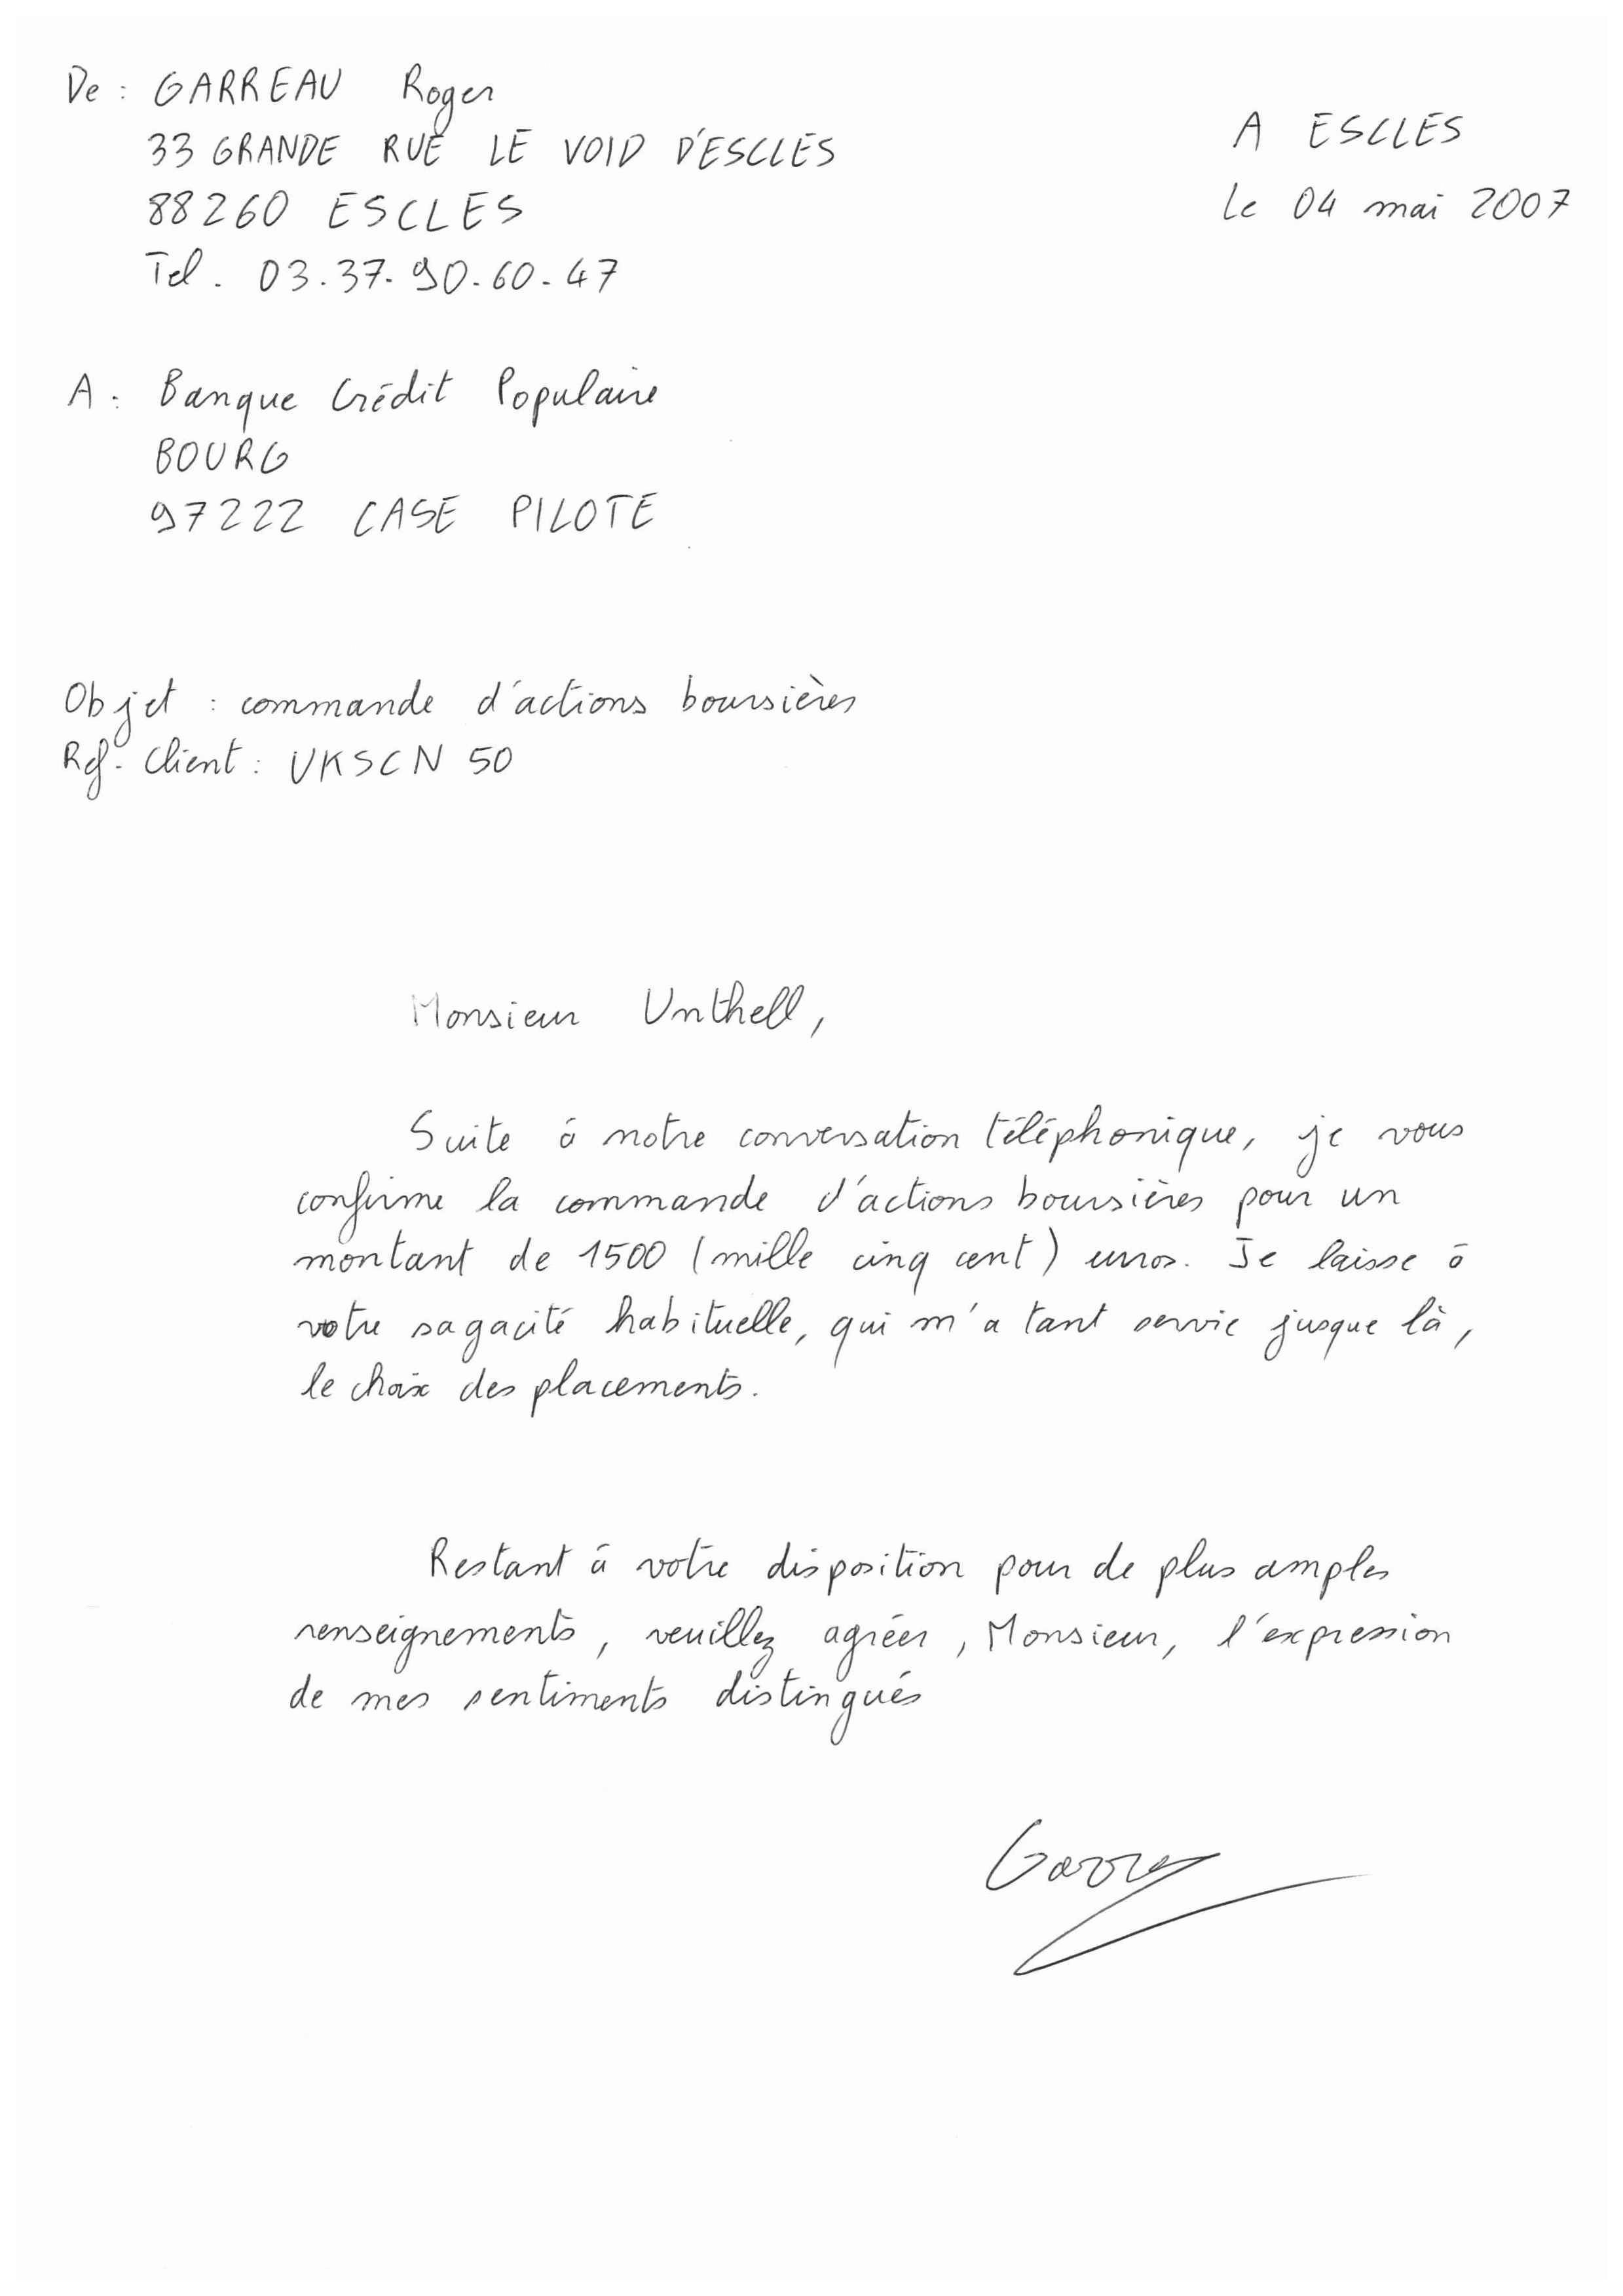 De : GARREAU Roger
33 GRANDE RUE LE VOID D'ESCLES
88260 ESCLES
Tel. 03.37.90.60.47
A ESCLES
Le 04 mai 2007
A : Banque Crédit Populaire
BOURG
97222 CASE PILOTE
Objet : commande d'actions boursières
Ref. Client : UKSCN 50
Monsieur Unthell,
Suite à notre conversation téléphonique, je vous
confirme la commande d'actions boursières pour un
montant de 1500 (mille cinq cent) euros. Je laisse à
votre sagacité habituelle, qui m'a tant servie jusque là,
le choix des placements.
Restant à votre disposition pour de plus amples
renseignements, veuillez agréer, Monsieur, l'expression
de mes sentiments distingués